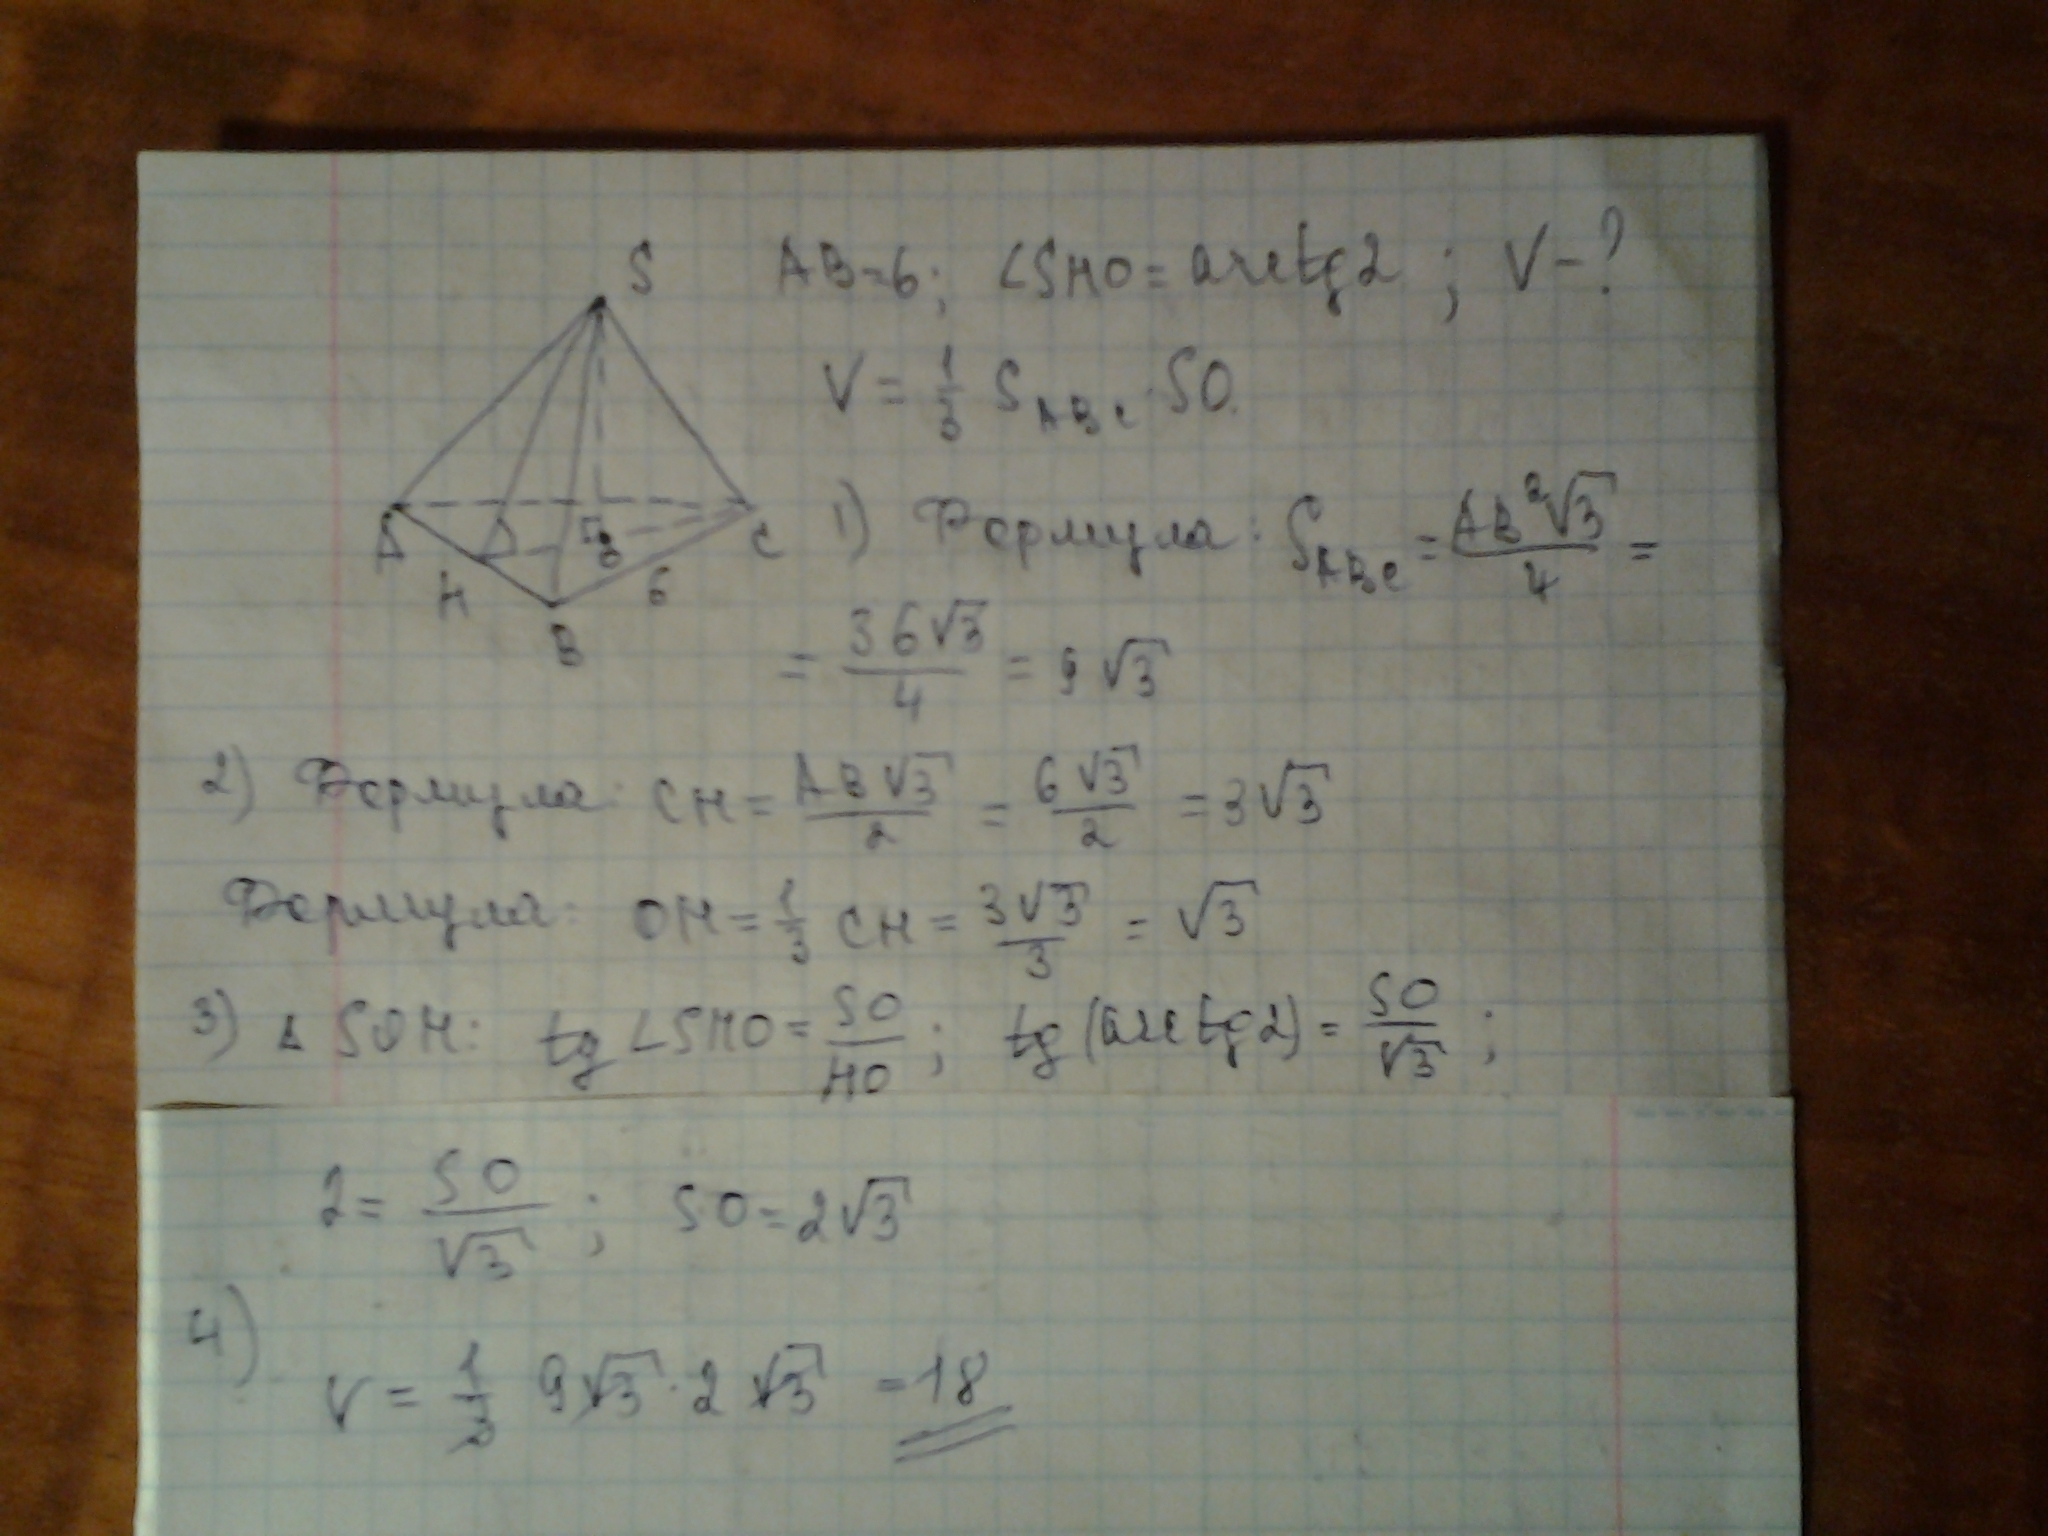 S AB=6; ∠SHO=arctg2; V-?
V = 1/3 S_ABC · SO.
A H B 6 C O
1) Формула: S_ABC = AB²√3/4 =
= 36√3/4 = 9√3
2) Формула: CH = AB√3/2 = 6√3/2 = 3√3
Формула: OH = 1/3 CH = 3√3/3 = √3
3) Δ SOH: tg ∠SHO = SO/HO; tg (arctg2) = SO/√3;
2 = SO/√3; SO = 2√3
4)
V = 1/3 9√3 · 2√3 = 18